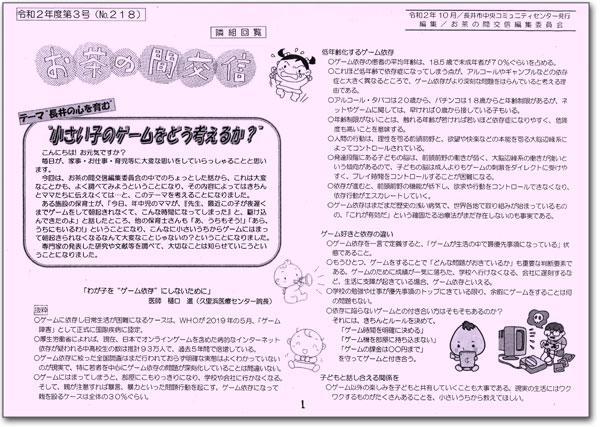 令和2年度第3号（No.218）
隣組回覧
お茶の間交信
令和2年10月／長井市中央コミュニティセンター発行
編集／お茶の間交信編集委員会
テーマ“長井の心を育む”
“小さい子のゲームをどう考えるか？”
こんにちは！お元気ですか？
毎日が、家事・お仕事・育児等に大変な思いをしていらっしゃることと思います。
今回は、お茶の間交信編集委員会の中でのちょっとした話から、これは大変
なことかも、よく調べてみようということになり、その内容によってはきちん
とママたちに伝えなくては…と、このテーマを考えることになりました。
ある施設の保育士が「今日、年中児のママが、『先生、最近この子が夜遅く
までゲームをして朝起きれなくて、こんな時間になってしまった』と、駆け込
んできたのよ」と話したところ、他の保育士さんも「あ、うちもそう!」「あら、
うちにもいるわ!」ということになり、こんなに小さいうちからゲームにはまっ
て朝起きられなくなるなんて大変なことじゃないの？ということになりました。
専門家の発表した研究や文献等を調べて、大切なことは知らせていこうとい
うことになりました。
「わが子を“ゲーム依存”にしないために」
医師　樋口　進（久里浜医療センター院長）
抜粋
○ゲームに依存し日常生活が困難になるケースは、WHOが2019年の5月、「ゲーム
障害」として正式に国際疾病に認定。
○厚生労働省によれば、現在、日本でオンラインゲームを含めた病的なインターネット
依存が疑われる中高校生の数は推計93万人で、過去5年間で倍増している。
○ゲーム依存に絞った全国調査はまだ行われておらず明確な実態はよくわかっていない
のが現実で、特に若者を中心にゲーム依存の問題が深刻化していることは間違いない。
○ゲームにはまってしまうと、部屋にこもりっきりになり、学校や会社に行かなくなる。
そして、親が注意すれば暴言、暴力といった問題行動を起こす。ゲーム依存になって
親を殴るケースは全体の30%ぐらい。
低年齢化するゲーム依存
○ゲーム依存の患者の平均年齢は、18.5歳で未成年者が70%ぐらいを占める。
○これほど低年齢で依存症になってしまう点が、アルコールやギャンブルなどの依存
症と大きく異なるところで、ゲーム依存がより深刻な問題をはらんでいると考える理
由である。
○アルコール・タバコは20歳から、パチンコは18歳からと年齢制限があるが、ネ
ットやゲームに関しては、早ければ0歳から接している子もいる。
○年齢制限がないことは、触れる年齢が若ければ若いほど依存症になりやすく、危険
度も高いことを意味する。
○人間の行動は、理性を司る前頭前野と、欲望や快楽などの本能を司る大脳辺縁系に
よってコントロールされている。
○発達段階にある子どもの脳は、前頭前野の働きが弱く、大脳辺縁系の働きが強いと
いう傾向があるので、子どもの脳は成人よりもゲームの刺激をダイレクトに受けや
すく、プレイ時間をコントロールすることが困難になる。
○依存が進むと、前頭前野の機能が低下し、欲求や行動をコントロールできなくなり、
依存行動がエスカレートしていく。
○ゲーム依存はまだまだ歴史の浅い病気で、世界各地で取り組みが始まっているもの
の、「これが有効だ」という確固たる治療法がまだ存在しないのも事実である。
ゲーム好きと依存の違い
○ゲーム依存を一言で定義すると、「ゲームが生活の中で最優先事項になっている」状
態であること。
○もうひとつ、ゲームをすることで「どんな問題がおきているか」も重要な判断要素で
ある。ゲームのために成績が一気に落ちた、学校へ行けなくなる、会社に遅刻するな
ど、生活に支障が起きている場合、ゲーム依存といえる。
○学校の勉強や仕事が優先事項のトップにきている限り、余暇にゲームをすることは何
の問題もない。
○依存に陥らないゲームとの付き合い方はそもそもあるのか？
それには、きちんとルールを決めて
「ゲーム時間を明確に決める」
「ゲーム機を部屋に持ち込まない」
「ゲームの課金は〇〇円まで」
を守ってゲームと付き合う。
子どもと話し合える関係を
○ゲーム以外の楽しみを子どもと共有していくことも大事である。現実の生活にはワク
ワクするものがたくさんあることを、小さいうちから教えてほしい。
1